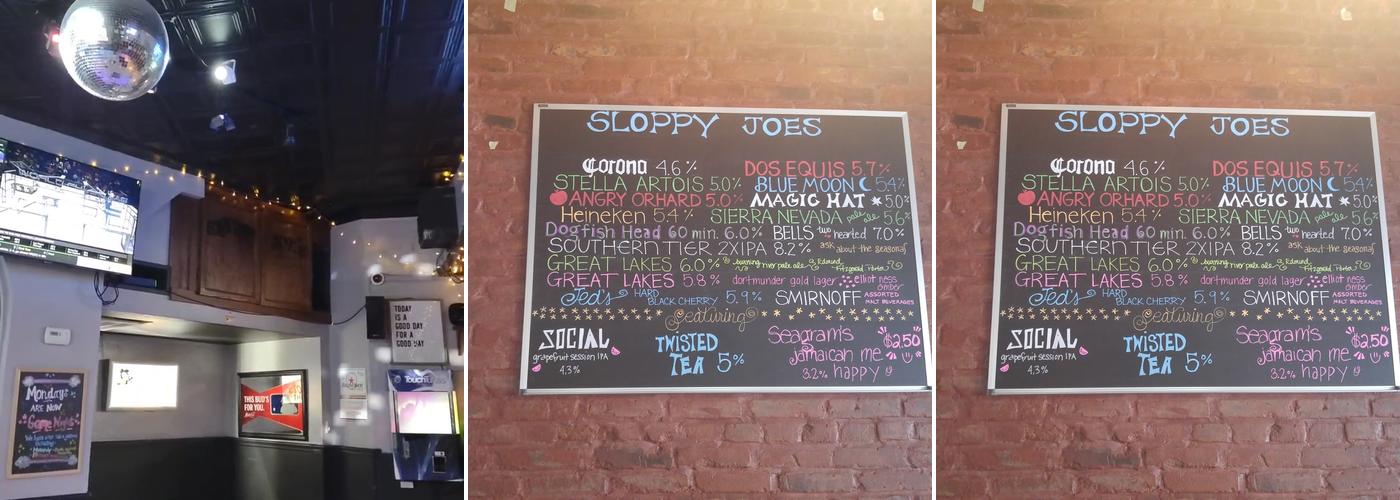 TODAY
IS A
GOOD DAY
FOR A
GOOD DAY
TouchTunes
THIS BUD'S
FOR YOU.
Mondays
ARE NOW
Game Nights
SLOPPY JOES
Corona 4.6% DOS EQUIS 5.7%
STELLA ARTOIS 5.0% BLUE MOON 5.4%
ANGRY ORHARD 5.0% MAGIC HAT 5.0%
Heineken 5.4% SIERRA NEVADA pale ale 5.6%
Dogfish Head 60 min. 6.0% BELLS two hearted 7.0%
SOUTHERN TIER 2XIPA 8.2% ask about the seasonal
GREAT LAKES 6.0% burning river pale ale Edmund Fitzgerald Porter
GREAT LAKES 5.8% dortmunder gold lager elliot ness amber
Jed's HARD BLACK CHERRY 5.9% SMIRNOFF ASSORTED MALT BEVERAGES
featuring
SOCIAL
grapefruit session IPA
4.3%
TWISTED
TEA 5%
Seagram's $2.50
jamaican me
3.2% happy
SLOPPY JOES
Corona 4.6% DOS EQUIS 5.7%
STELLA ARTOIS 5.0% BLUE MOON 5.4%
ANGRY ORHARD 5.0% MAGIC HAT 5.0%
Heineken 5.4% SIERRA NEVADA pale ale 5.6%
Dogfish Head 60 min. 6.0% BELLS two hearted 7.0%
SOUTHERN TIER 2XIPA 8.2% ask about the seasonal
GREAT LAKES 6.0% burning river pale ale Edmund Fitzgerald Porter
GREAT LAKES 5.8% dortmunder gold lager elliot ness amber
Jed's HARD BLACK CHERRY 5.9% SMIRNOFF ASSORTED MALT BEVERAGES
featuring
SOCIAL
grapefruit session IPA
4.3%
TWISTED
TEA 5%
Seagram's $2.50
jamaican me
3.2% happy